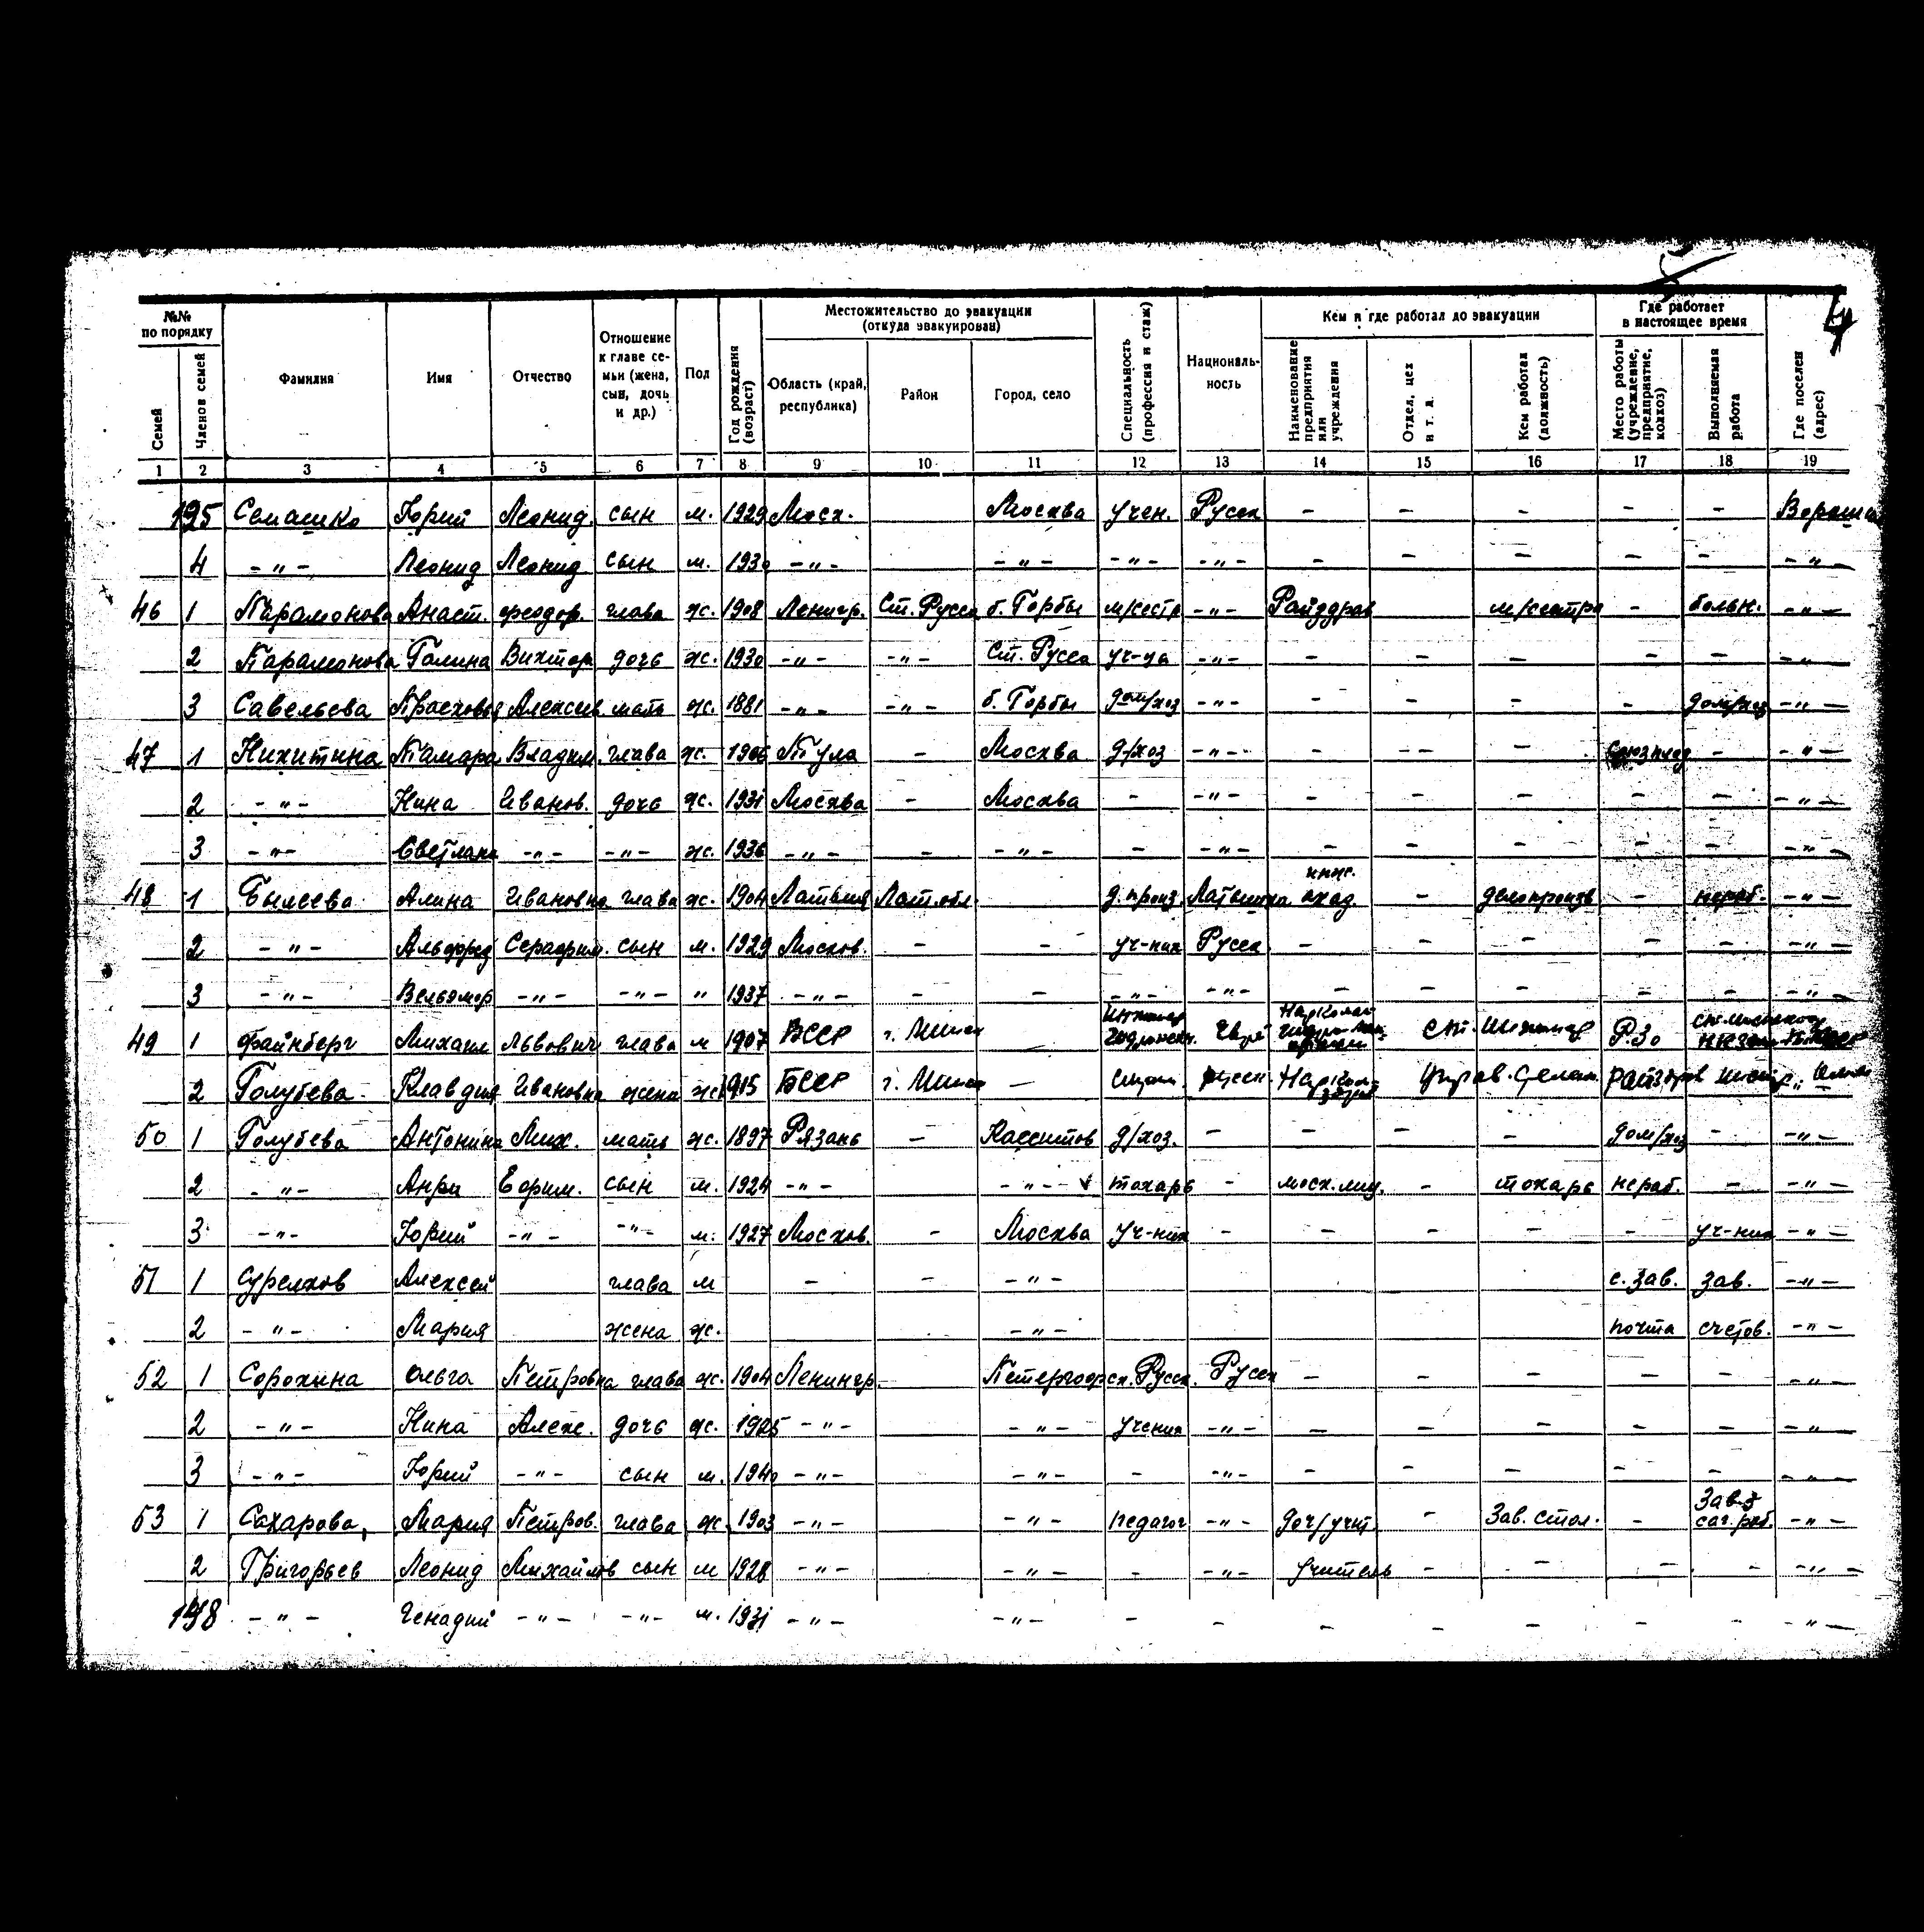 5
4
№№ по порядку Фамилия Имя Отчество Отношение к главе семьи (жена, сын, дочь и др.) Пол Год рождения (возраст) Местожительство до эвакуации (откуда эвакуирован) Специальность (профессия и стаж) Националь-ность Кем и где работал до эвакуации Где работает в настоящее время Где поселен (адрес)
Семей Членов семей Область (край, республика) Район Город, село Наименование предприятия или учреждения Отдел, цех и т. д. Кем работал (должность) Место работы (учреждение, предприятие, колхоз) Выполняемая работа
1 2 3 4 5 6 7 8 9 10 11 12 13 14 15 16 17 18 19
195 Семашко Юрий Леонид. сын м. 1929 Моск. Москва учен. Русск - - - - -
4 -"- Леонид Леонид сын м. 1930 -"- -"- -"- -"- - - - - - -"-
46 1 Парамонова Анаст. Феодор. глава ж. 1908 Ленигр. Ст. Русса б. Горбы м/сестр -"- Райздрав м/сестра - больн. -"-
2 Парамонова Галина Виктор дочь ж. 1930 -"- -"- Ст. Русса уч-ца -"- - - - - - -"-
3 Савельева Прасковья Алексеев. мать ж. 1881 -"- -"- б. Горбы дом/хоз -"- - - - - дом/хоз -"-
47 1 Никитина Тамара Владим. глава ж. 1906 Тула - Москва д/хоз -"- - -- - - -"-
2 -"- Нина Иванов. дочь ж. 1931 Москва - Москва - -"- - - - - - -"-
3 -"- Светлана -"- -"- ж. 1936 -"- - -"- - -"- - - - - - -"-
48 1 Былеева Алина Ивановна глава ж. 1904 Латвия Лат.обл д.произ. Латышка - делопроизв - нераб. -"-
2 -"- Альфред Серафим. сын м. 1929 Москов. - - уч-ник Русск. - - - - - -"-
3 -"- -"- -"- " 1937 -"- - - -"- -"- - - - - - -"-
49 1 Файнберг Михаил Львович глава м 1907 БССР г. Минск Инженер Еврей ст. инженер РЗО
2 Голубева Клавдия Ивановна жена ж 1915 БССР г. Минск - русск.
50 1 Голубева Антонина Мих. мать ж. 1897 Рязань - Кассимов д/хоз. - - - - дом/хоз - -"-
2 -"- Анри Ефим. сын м. 1924 -"- -"- v токарь - - токарь нераб. - -"-
3 -"- Юрий -"- -"- м. 1927 Москов. - Москва уч-ник - - - - - уч-ник -"-
51 1 Сурелков Алексей глава м - - -"- с. зав. зав. -"-
2 -"- Мария жена ж. -"- почта счетов. -"-
52 1 Сорокина Ольга Петровна глава ж. 1904 Ленингр. Петергофск. Русск. Русск - - - - - -"-
2 -"- Нина Алекс. дочь ж. 1925 -"- -"- ученик -"- - - - - - -"-
3 -"- Юрий -"- сын м. 1940 -"- -"- - -"- - - - - - -"-
53 1 Сахарова, Мария Петров. глава ж. 1903 -"- -"- педагог -"- - Зав. стол. - -"-
2 Григорьев Леонид Михайлов сын м 1928 -"- -"- - -"- учитель - - - - -"-
198 -"- Генадий -"- -"- м. 1931 -"- -"- - - - - - - - -"-